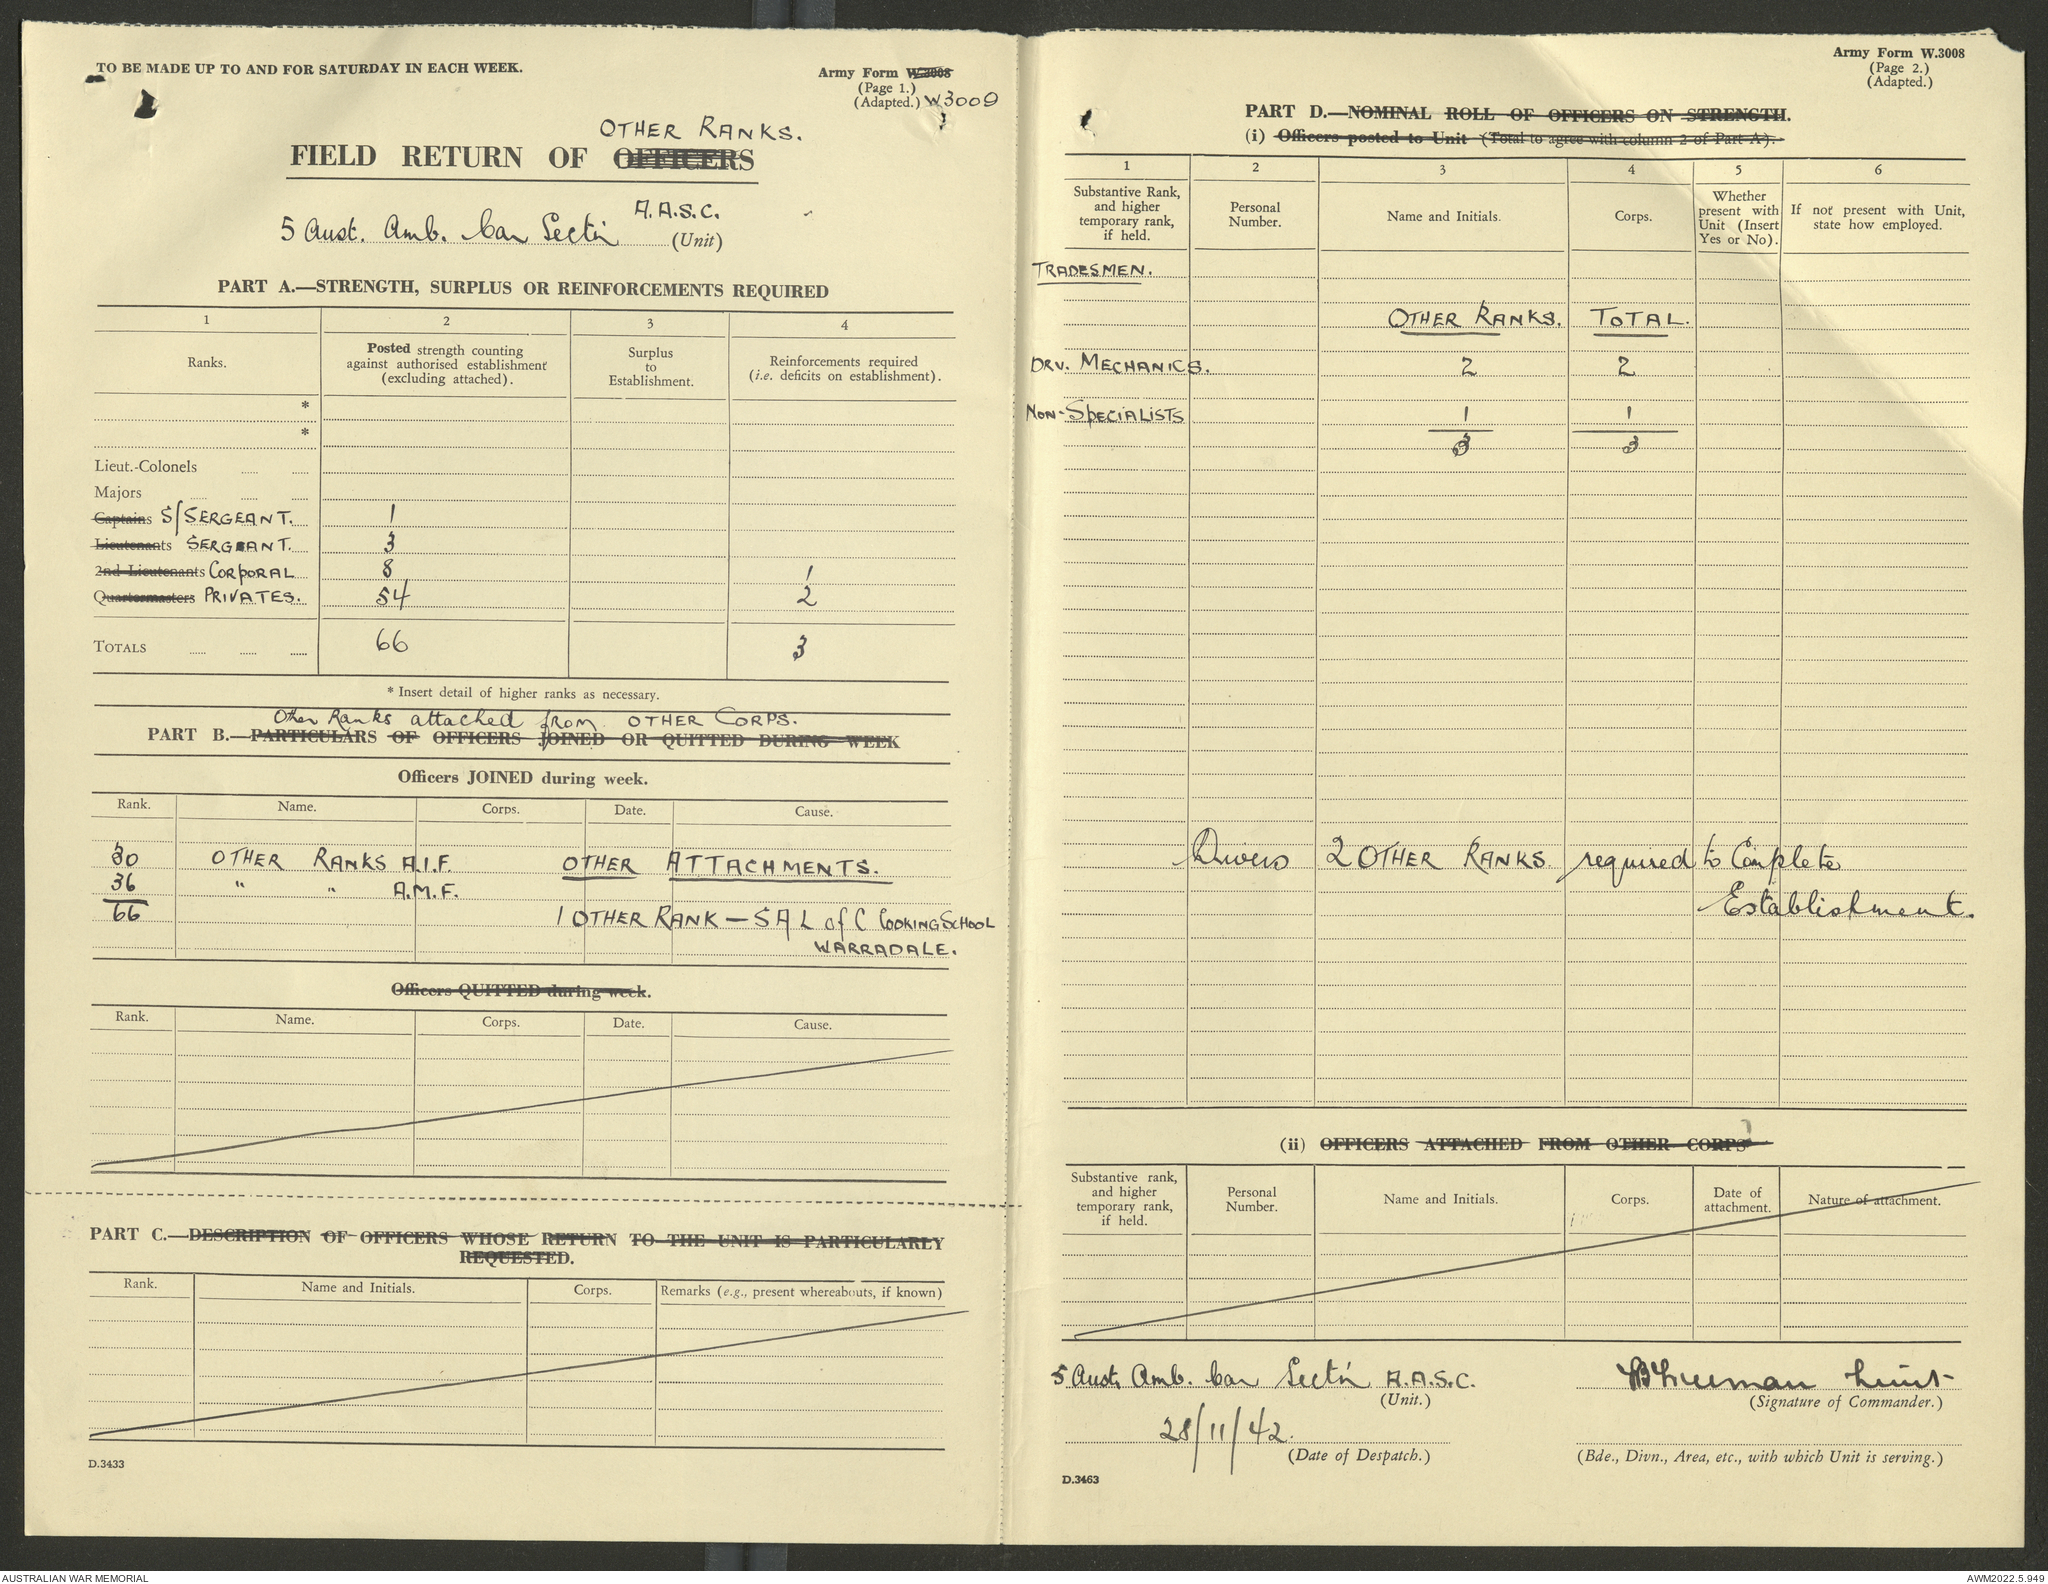 TO BE MADE UP TO AND FOR SATURDAY IN EACH WEEK.
Army Form W.3008
(Page 1.)
(Adapted.) W3009
OTHER RANKS.
FIELD RETURN OF OFFICERS
5 Aust. Amb. Car Sect'n A.A.S.C.
(Unit)
PART A.—STRENGTH, SURPLUS OR REINFORCEMENTS REQUIRED
1 2 3 4
Ranks. Posted strength counting against authorised establishment (excluding attached). Surplus to Establishment. Reinforcements required (i.e. deficits on establishment).
*
*
Lieut.-Colonels
Majors
Captains S/SERGEANT. 1
Lieutenants SERGEANT. 3
2nd Lieutenants CORPORAL 8 1
Quartermasters PRIVATES. 54 2
TOTALS 66 3
* Insert detail of higher ranks as necessary.
Other Ranks attached from OTHER CORPS.
PART B.—PARTICULARS OF OFFICERS JOINED OR QUITTED DURING WEEK
Officers JOINED during week.
Rank. Name. Corps. Date. Cause.
30 OTHER RANKS A.I.F. OTHER ATTACHMENTS.
36 " " A.M.F.
66 1 OTHER RANK — S A L of C COOKING SCHOOL
WARRADALE.
Officers QUITTED during week.
Rank. Name. Corps. Date. Cause.
PART C.—DESCRIPTION OF OFFICERS WHOSE RETURN TO THE UNIT IS PARTICULARLY
REQUESTED.
Rank. Name and Initials. Corps. Remarks (e.g., present whereabouts, if known)
D.3433
Army Form W.3008
(Page 2.)
(Adapted.)
PART D.—NOMINAL ROLL OF OFFICERS ON STRENGTH.
(i) Officers posted to Unit (Total to agree with column 2 of Part A).
1 2 3 4 5 6
Substantive Rank, and higher temporary rank, if held. Personal Number. Name and Initials. Corps. Whether present with Unit (Insert Yes or No). If not present with Unit, state how employed.
TRADESMEN.
OTHER RANKS. TOTAL.
DRV. MECHANICS. 2 2
NON-SPECIALISTS 1 1
3 3
Drivers 2 OTHER RANKS required to Complete
Establishment.
(ii) OFFICERS ATTACHED FROM OTHER CORPS
Substantive rank, and higher temporary rank, if held. Personal Number. Name and Initials. Corps. Date of attachment. Nature of attachment.
5 Aust. Amb. Car Sect'n A.A.S.C. Lieut
(Unit.) (Signature of Commander.)
28/11/42.
(Date of Despatch.) (Bde., Divn., Area, etc., with which Unit is serving.)
D.3463
AUSTRALIAN WAR MEMORIAL AWM2022.5.949